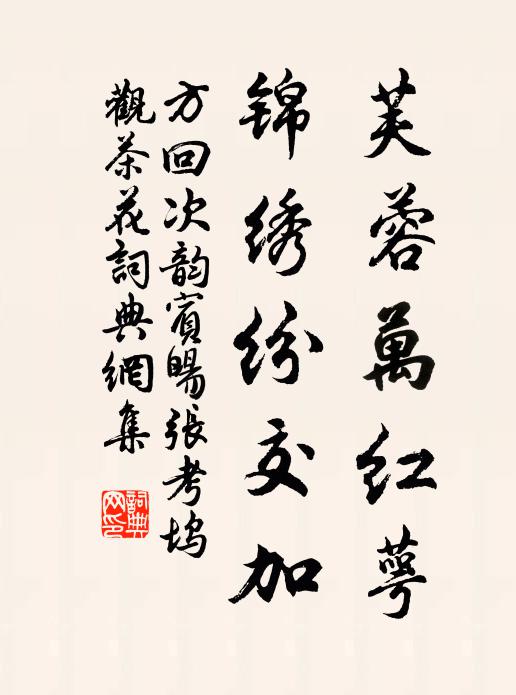 芙蓉萬红萼
锦绣纷交加
方回次韵賓暘張考坞
觀茶花詞典網集
詞典网印